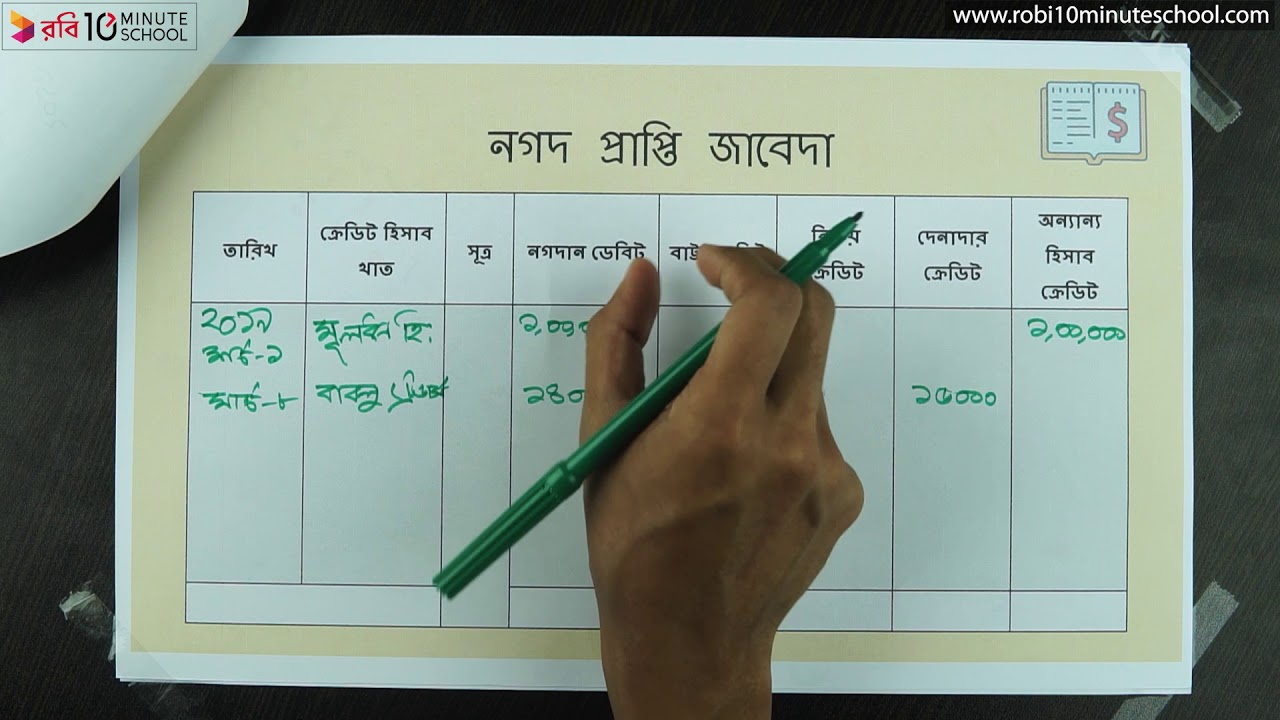 রবি 10 MINUTE SCHOOL
www.robi10minuteschool.com
নগদ প্রাপ্তি জাবেদা
তারিখ
ক্রেডিট হিসাব
খাত
সূত্র
নগদান ডেবিট
দেনাদার
ক্রেডিট
অন্যান্য
হিসাব
ক্রেডিট
২০১৯
মার্চ-১
মূলধন হি.
২,০০,০০০
মার্চ-৮
বাবলু
১৫০০০